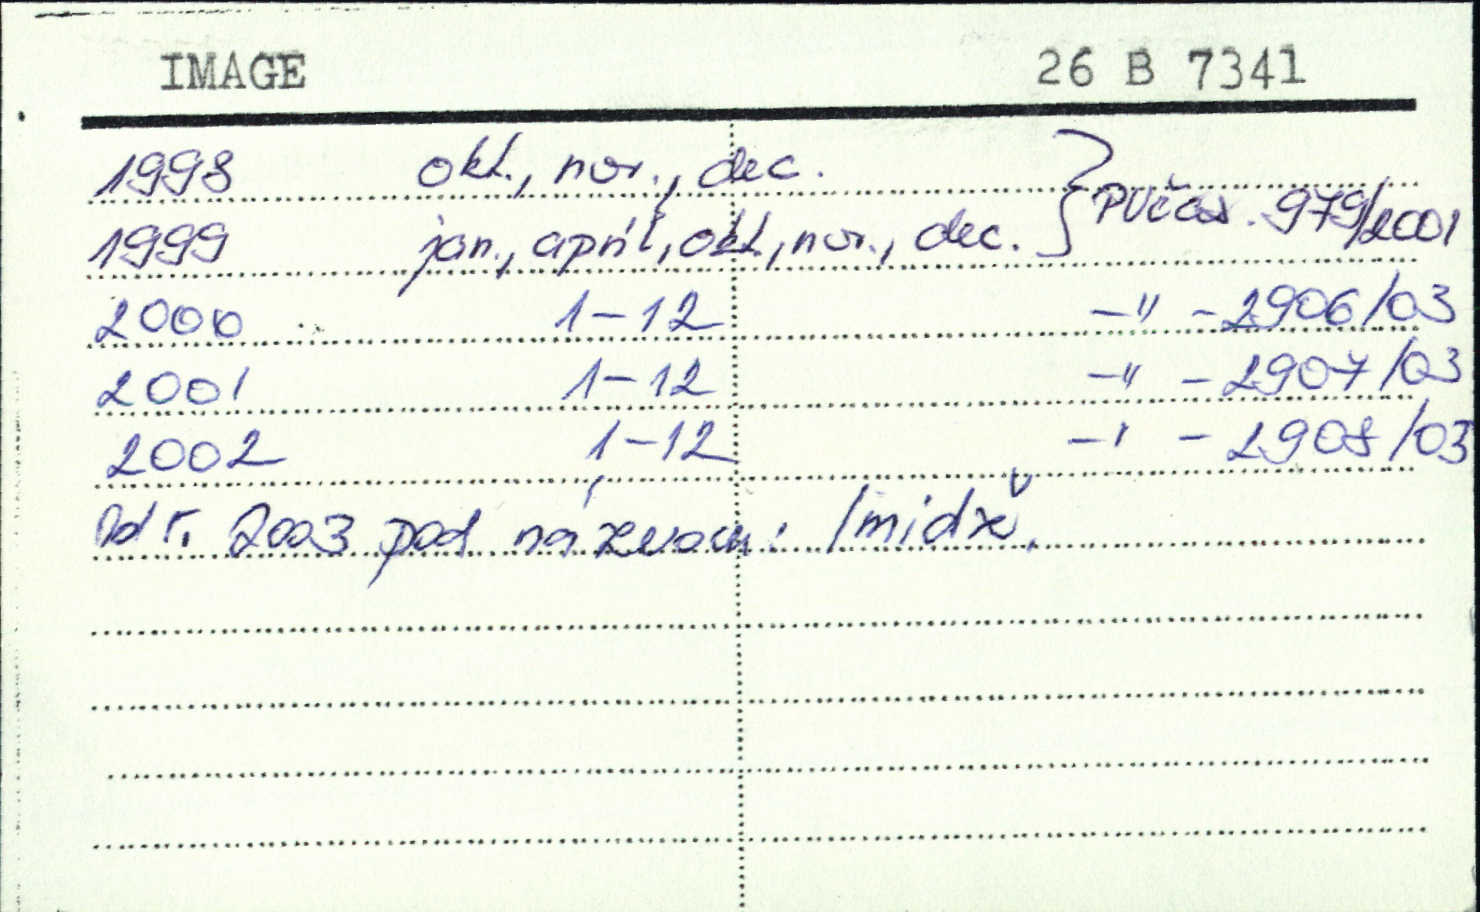 IMAGE 26 B 7341
1998 okt., nov., dec.
1999 jan., apríl, okt., nov., dec. } PVčas. 979/2001
2000 1-12 -"- 2906/03
2001 1-12 -"- 2907/03
2002 1-12 -'- 2908/03
Od r. 2003 pod názvom: Imidž.